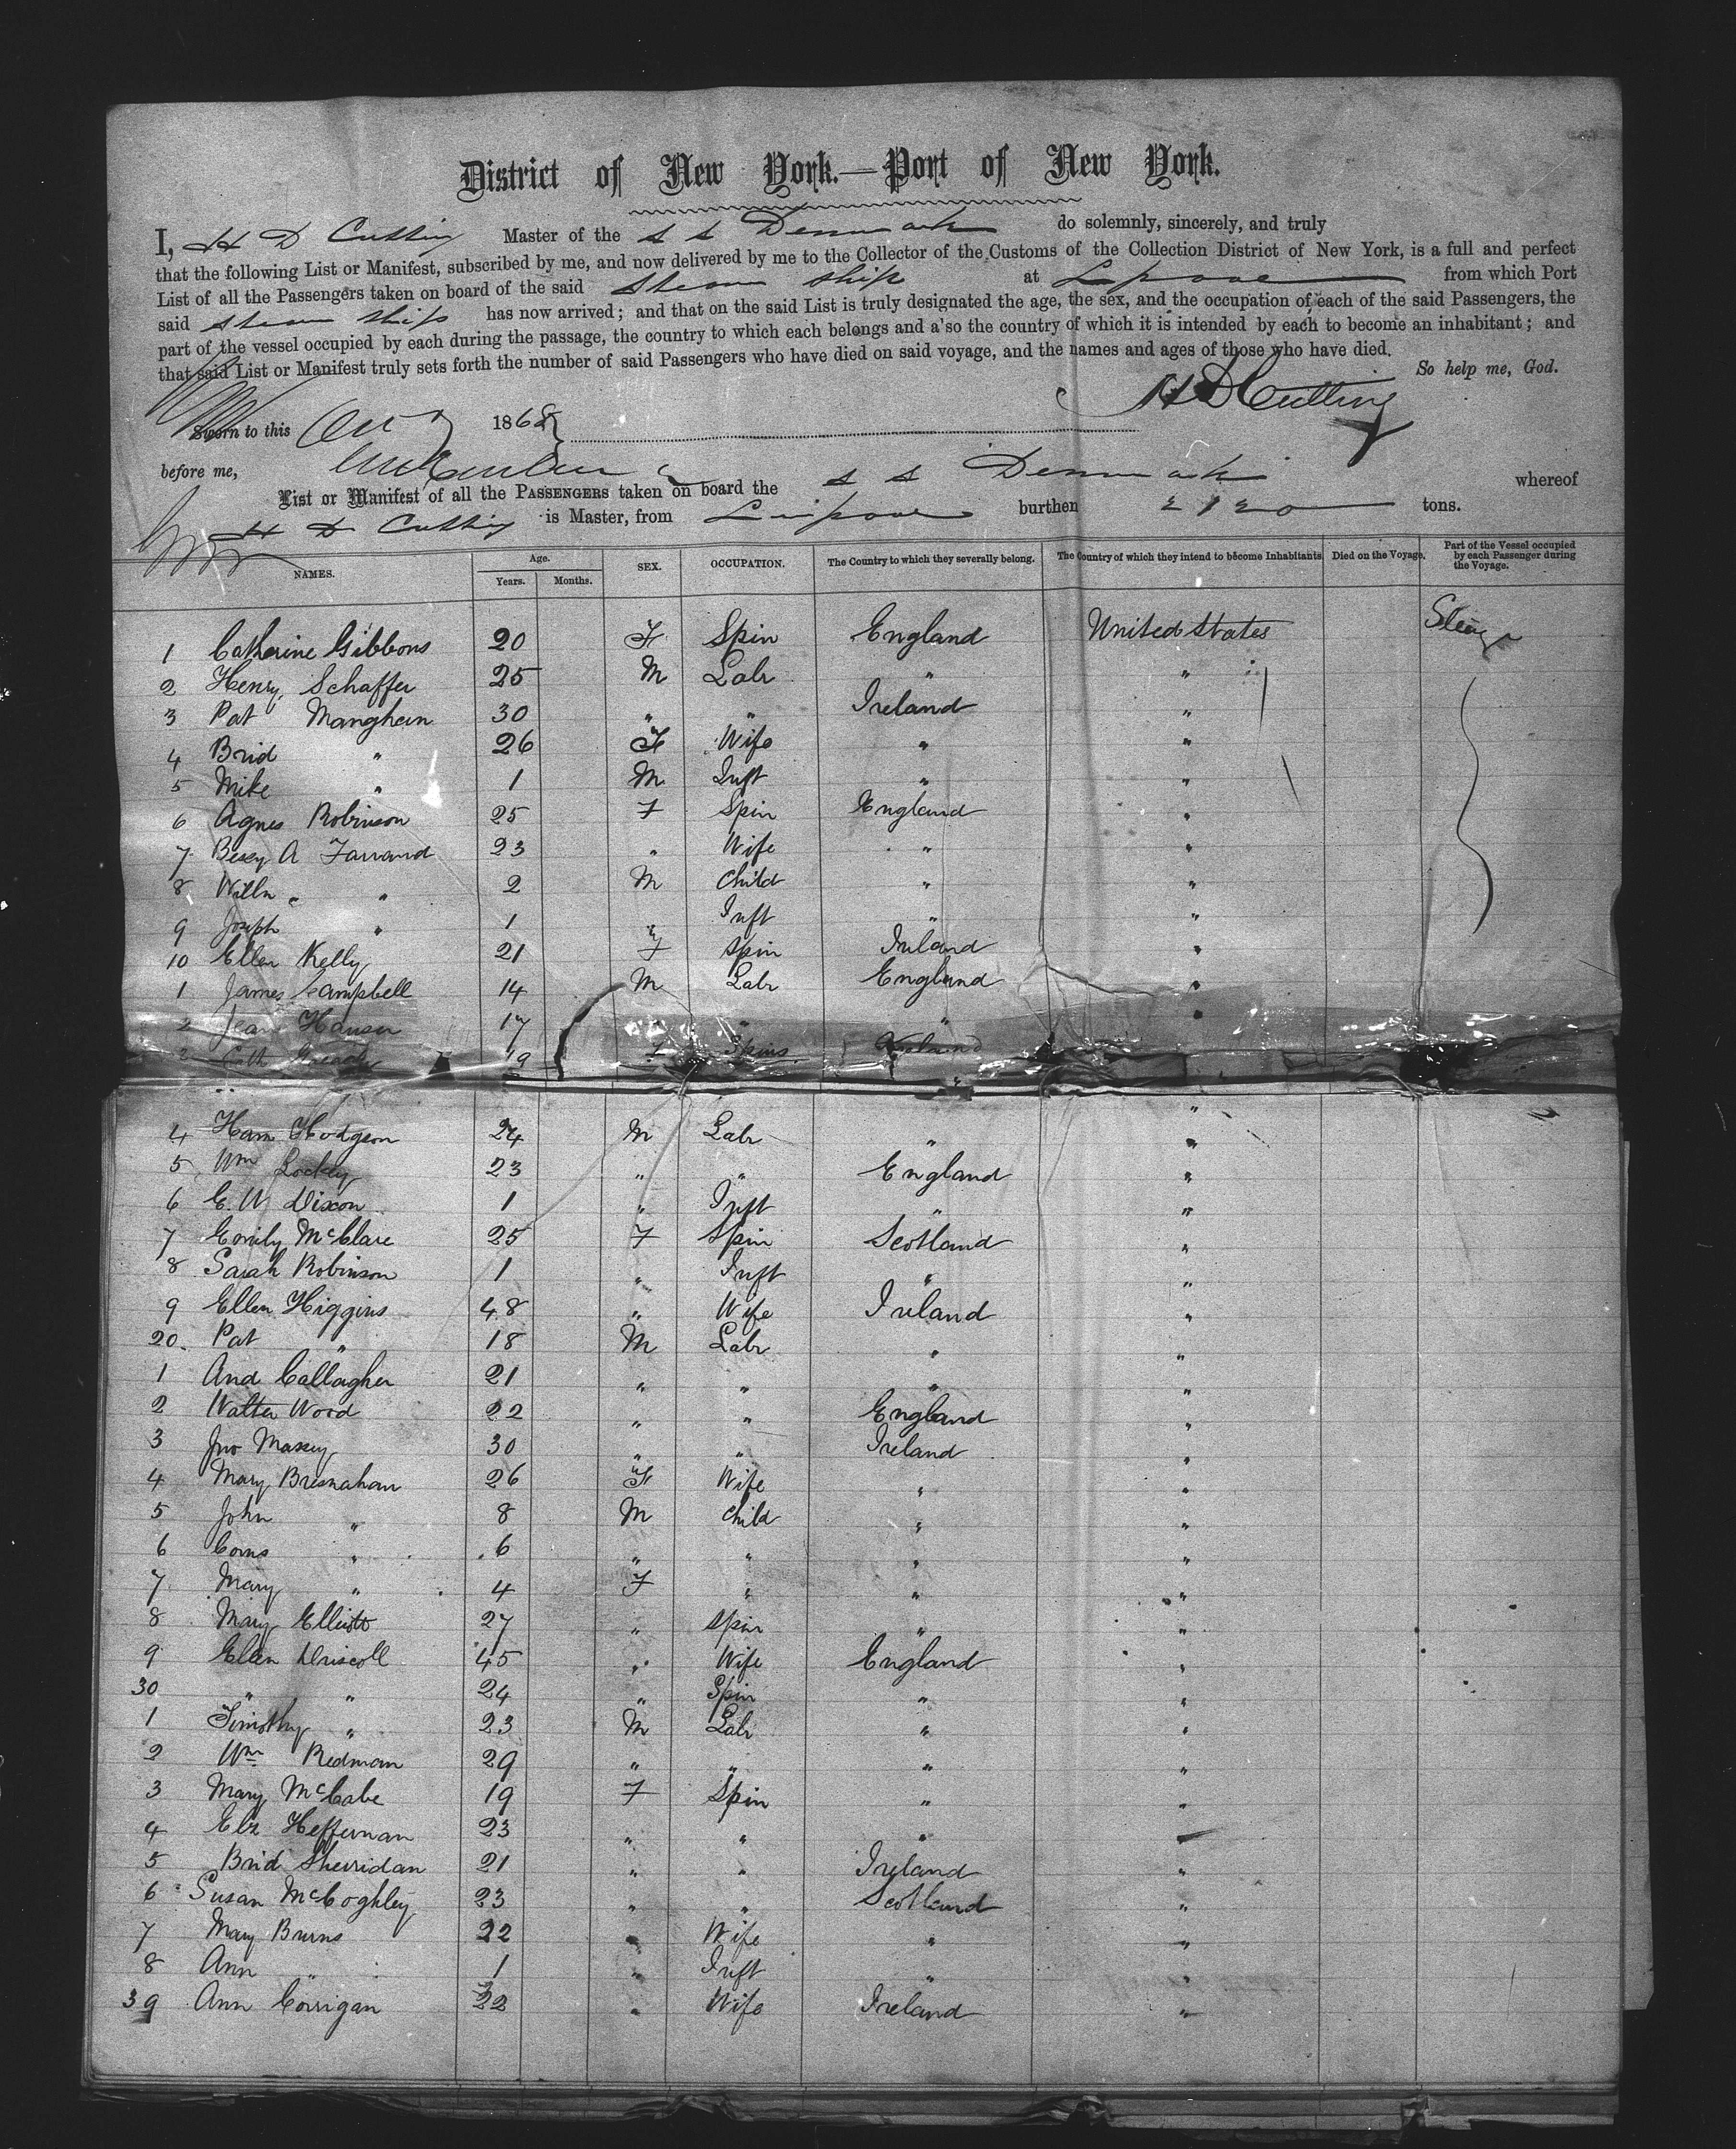 District of New York.—Port of New York.
I, H D Cutting Master of the S S Denmark do solemnly, sincerely, and truly
that the following List or Manifest, subscribed by me, and now delivered by me to the Collector of the Customs of the Collection District of New York, is a full and perfect
List of all the Passengers taken on board of the said Steam Ship at Lpool from which Port
said Steam Ship has now arrived; and that on the said List is truly designated the age, the sex, and the occupation of each of the said Passengers, the
part of the vessel occupied by each during the passage, the country to which each belongs and a'so the country of which it is intended by each to become an inhabitant; and
that said List or Manifest truly sets forth the number of said Passengers who have died on said voyage, and the names and ages of those who have died.
So help me, God.
H D Cutting
Sworn to this Oct 7 1868
before me,
List or Manifest of all the PASSENGERS taken on board the S S Denmark whereof
H D Cutting is Master, from Liverpool burthen tons.
NAMES. Age. Years. Months. SEX. OCCUPATION. The Country to which they severally belong. The Country of which they intend to become Inhabitants. Died on the Voyage. Part of the Vessel occupied by each Passenger during the Voyage.
1 Catherine Gibbons 20 F Spin England United States
2 Henry Schaffer 25 M Labr " "
3 Pat Manghan 30 " " Ireland "
4 Brid " 26 F Wife " "
5 Mike " 1 M Inft " "
6 Agnes Robinson 25 F Spin England "
7 Bessy A Farrand 23 " Wife " "
8 Willm " " 2 M Child " "
9 Joseph " 1 " Inft " "
10 Ellen Kelly 21 F Spin Ireland "
1 James Campbell 14 M Labr England "
2 Hauser 17 " " "
3 Cath 19 F Spins. Ireland "
4 Ham Hodgson 24 M Labr " "
5 Wm Lockey 23 " " England "
6 E. W Dixon 1 " Inft " "
7 Emily McClare 25 F Spin Scotland "
8 Sarah Robinson 1 " Inft " "
9 Ellen Higgins 48 " Wife Ireland "
20. Pat " 18 M Labr " "
1 And Callagher 21 " " " "
2 Walter Wood 22 " " England "
3 Jno Massey 30 " " Ireland "
4 Mary Bresnahan 26 F Wife " "
5 John " 8 M Child " "
6 Corns " 6 " " " "
7 Mary " 4 F " " "
8 Mary Elliott 27 " Spin " "
9 Ellen Driscoll 45 " Wife England "
30 " " 24 " Spin " "
1 Timothy " 23 M Labr " "
2 Wm Redman 29 " " " "
3 Mary McCabe 19 F Spin " "
4 Elz Heffernan 23 " " " "
5 Brid Sherridan 21 " " Ireland "
6 Susan McCoghley 23 " " Scotland "
7 Mary Burns 22 " Wife " "
8 Ann " 1 " Inft " "
39 Ann Corrigan 22 " Wife Ireland "